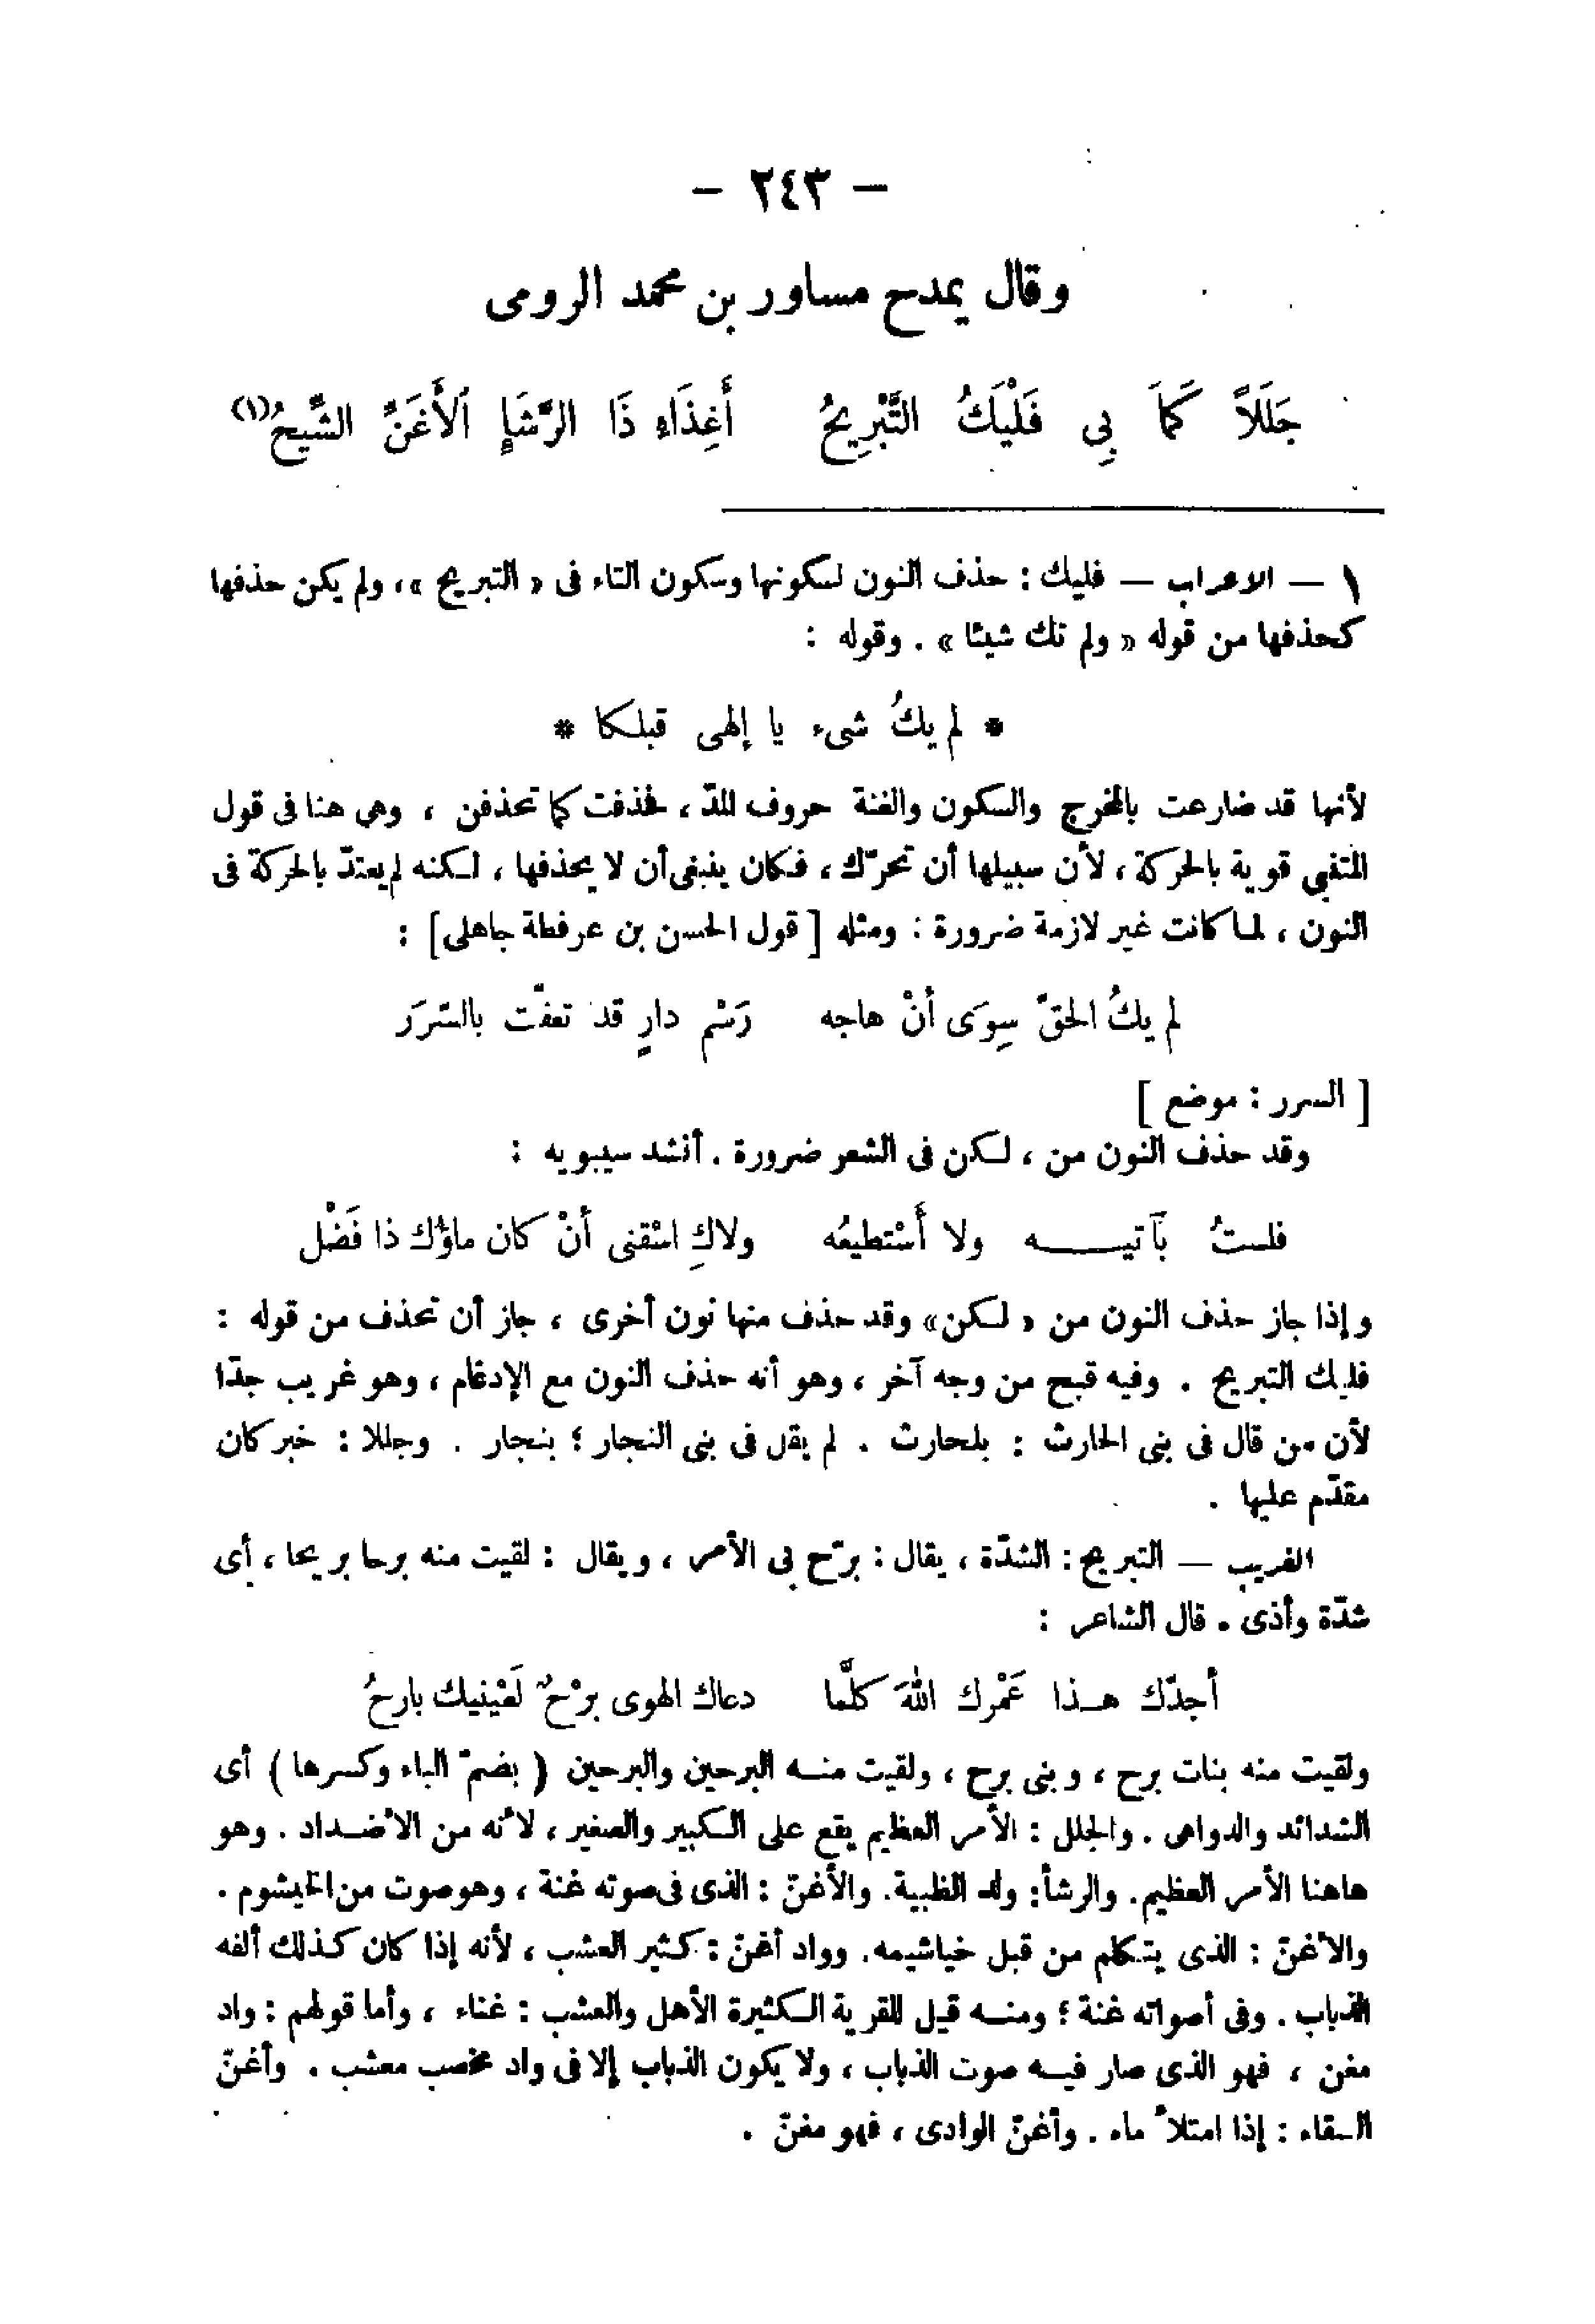 — ٢٤٣ —
وقال يمدح مساور بن محمد الرومى
جَلَلاً كَمَا بِي فَلْيَكُ التَّبْرِيحُ أَغِذَاءِ ذَا الرَّشَإِ الأَغَنِّ الشِّيحُ(١)
١ — الاعراب — فليك : حذف النون لسكونها وسكون التاء فى « التبريح » ، ولم يكن حذفها
كحذفها من قوله « ولم تك شيئا » . وقوله :
* لم يكُ شىء يا إلهى قبلكا *
لأنها قد ضارعت بالمخرج والسكون والغنة حروف المدّ ، فحذفت كما تحذفن ، وهي هنا فى قول
المتنبي قوية بالحركة ، لأن سبيلها أن تحرّك ، فكان ينبغى أن لا يحذفها ، لكنه لم يعتدّ بالحركة فى
النون ، لما كانت غير لازمة ضرورة : ومثله [ قول الحسن بن عرفطة جاهلى ] :
لم يكُ الحقّ سِوَى أنْ هاجه رَسْم دارٍ قد تعفّت بالسّرَر
[ السرر : موضع ]
وقد حذف النون من ، لكن فى الشعر ضرورة . أنشد سيبويه :
فلستُ بآتيـه ولا أَسْتطيعُه ولاكِ اسْقنى أنْ كان ماؤك ذا فَضْل
وإذا جاز حذف النون من « لكن » وقد حذف منها نون أخرى ، جاز أن تحذف من قوله :
فليك التبريح . وفيه قبح من وجه آخر ، وهو أنه حذف النون مع الإدغام ، وهو غريب جدّا
لأن من قال فى بنى الحارث : بلحارث . لم يقل فى بنى النجار ؛ بنجار . وجللا : خبر كان
مقدّم عليها .
الغريب — التبريح : الشدّة ، يقال : برّح بى الأمر ، ويقال : لقيت منه برحا بريحا ، أى
شدّة وأذى . قال الشاعر :
أجدّك هـذا عَمْرك اللهَ كلَّما دعاك الهوى برْحٌ لَعْينيك بارحُ
ولقيت منه بنات برح ، وبنى برح ، ولقيت منـه البرحين والبرحين ( بضمّ الباء وكسرها ) أى
الشدائد والدواهى . والجلل : الأمر العظيم يقع على الكبير والصغير ، لأنه من الأضـداد . وهو
هاهنا الأمر العظيم. والرشأ : ولد الظبية. والأغنّ : الذى فى صوته غنة ، وهو صوت من الخيشوم .
والأغنّ : الذى يتكلم من قبل خياشيمه. وواد أغنّ : كثير العشب ، لأنه إذا كان كذلك ألفه
الذباب . وفى أصواته غنة ؛ ومنـه قيل للقرية الكثيرة الأهل والعشب : غناء ، وأما قولهم : واد
مغن ، فهو الذى صار فيـه صوت الذباب ، ولا يكون الذباب إلا فى واد مخصب معشب . وأغنّ
السقاء : إذا امتلأ ماء . وأغنّ الوادى ، فهو مغنّ .